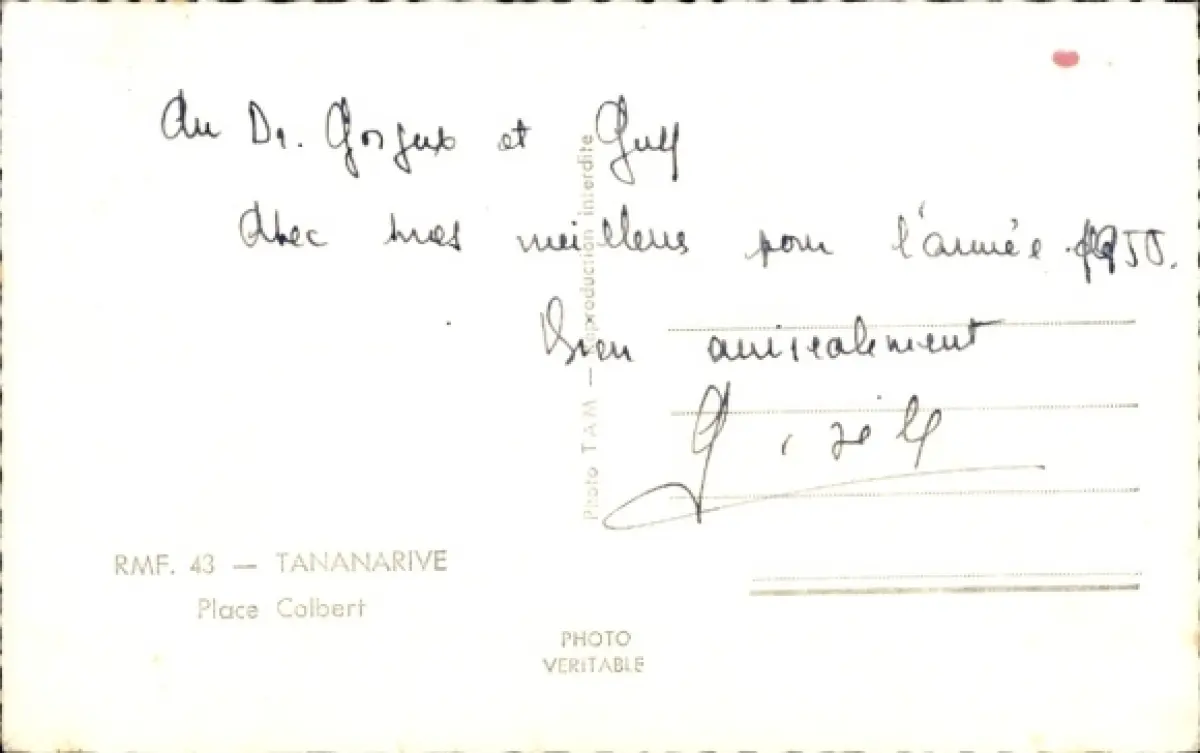 Au Dr. et
Avec mes meilleurs pour l'année 1950.
Bien amicalement
RMF. 43 — TANANARIVE
Place Colbert
Photo TAM — Reproduction interdite
PHOTO
VERITABLE